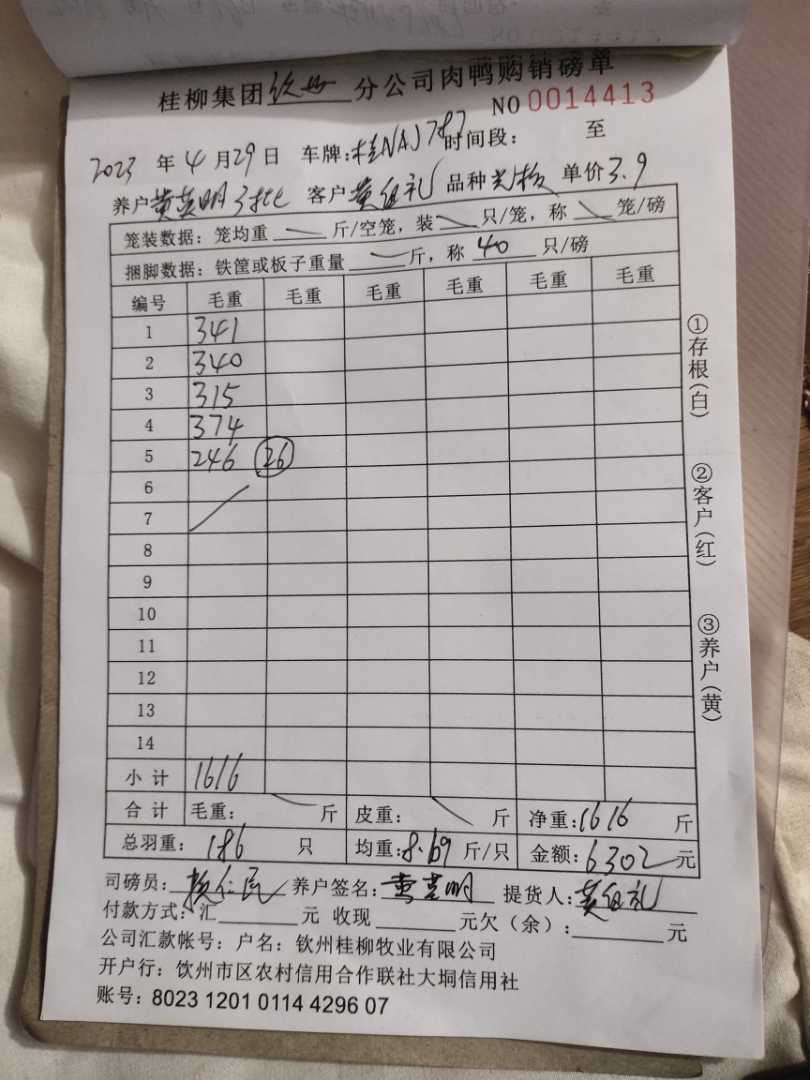 桂柳集团钦州分公司肉鸭购销磅单
NO 0014413
2023 年 4 月 29 日 车牌:桂NAJ787 时间段: 至
养户 黄英明3批 客户 黄组礼 品种 光板 单价 3.9
笼装数据: 笼均重 斤/空笼, 装 只/笼, 称 笼/磅
捆脚数据: 铁筐或板子重量 斤, 称 40 只/磅
编号 毛重 毛重 毛重 毛重 毛重 毛重
1 341
2 340
3 315
4 374
5 246 26
6
7
8
9
10
11
12
13
14
小计 1616
合计 毛重: 斤 皮重: 斤 净重:1616 斤
总羽重: 186 只 均重:8.69 斤/只 金额:6302元
司磅员: 仁民 养户签名: 黄英明 提货人: 黄组礼
付款方式: 汇 元 收现 元欠(余): 元
公司汇款帐号: 户名: 钦州桂柳牧业有限公司
开户行: 钦州市区农村信用合作联社大垌信用社
账号: 8023 1201 0114 4296 07
①存根(白)
②客户(红)
③养户(黄)